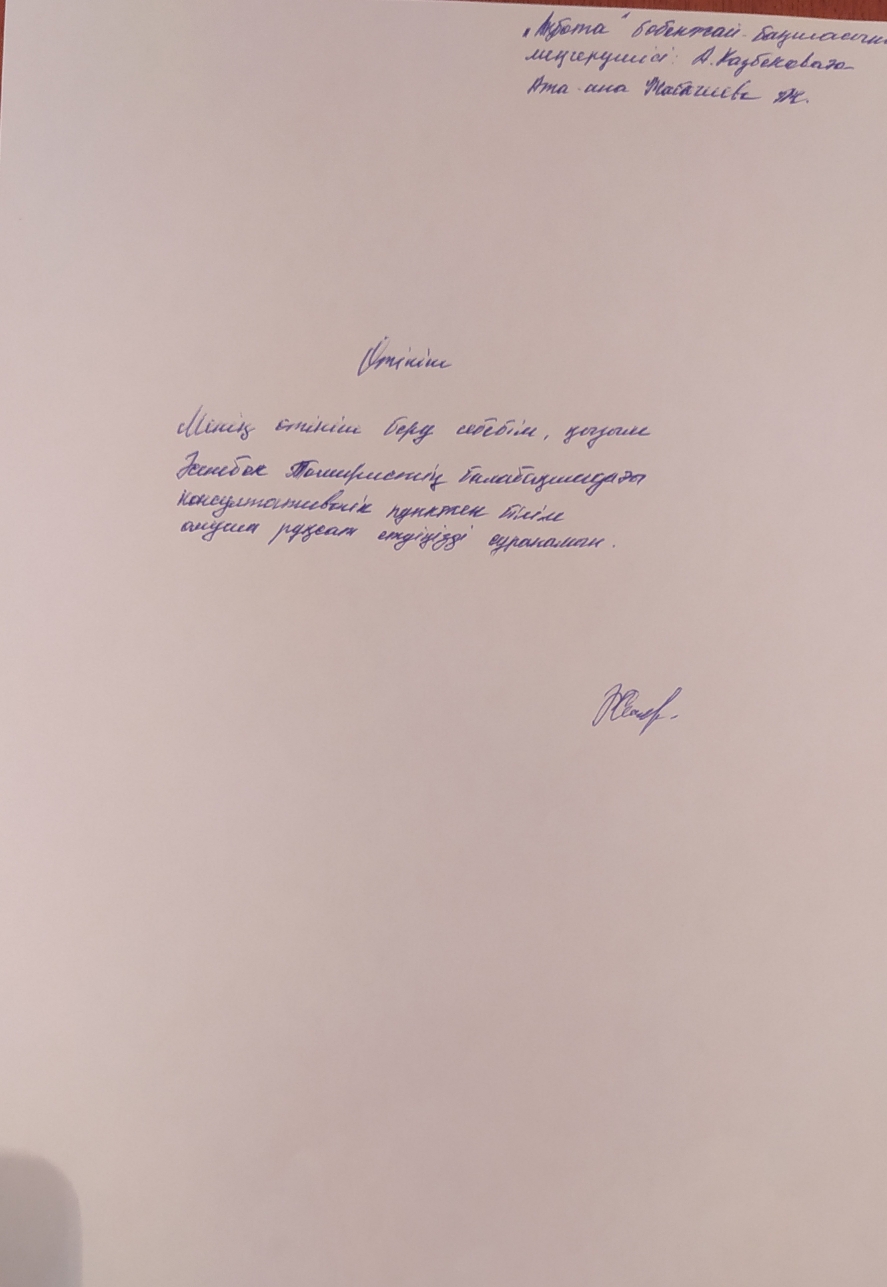 "Ақбота" бөбекжай-бақшасының
меңгерушісі: А.Казбековаға
Ата-ана
Өтініш
Мінің өтініш беру себебім, қызым
Томиристің балабақшадағы
консултативтік пунктен білім
алуына рұқсат етуіңізді сұранамын.